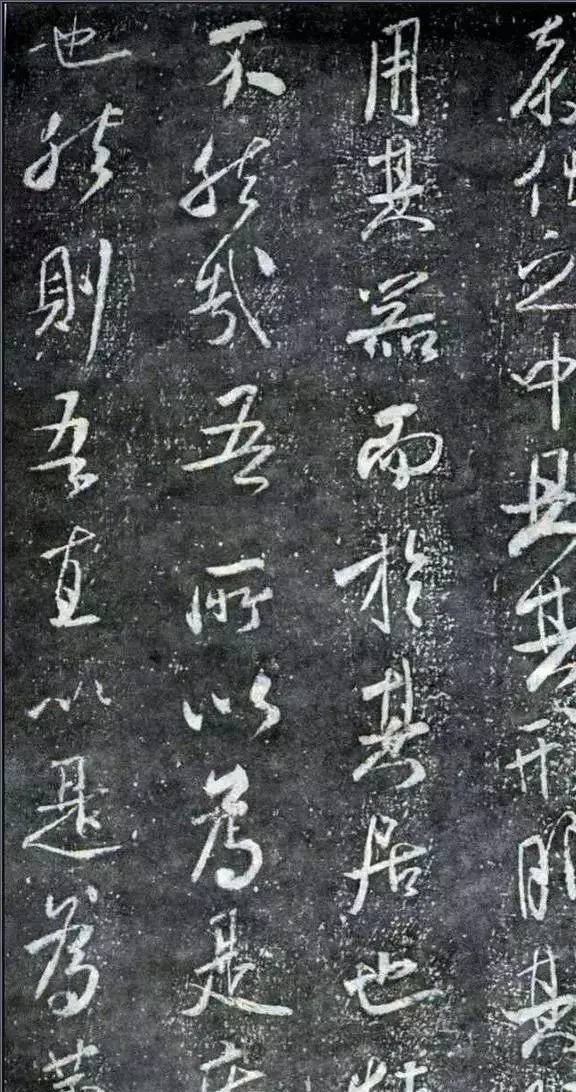 教之中且其明其
用其器而於其居也
不然哉吾所以為是
也然則吾直以是為